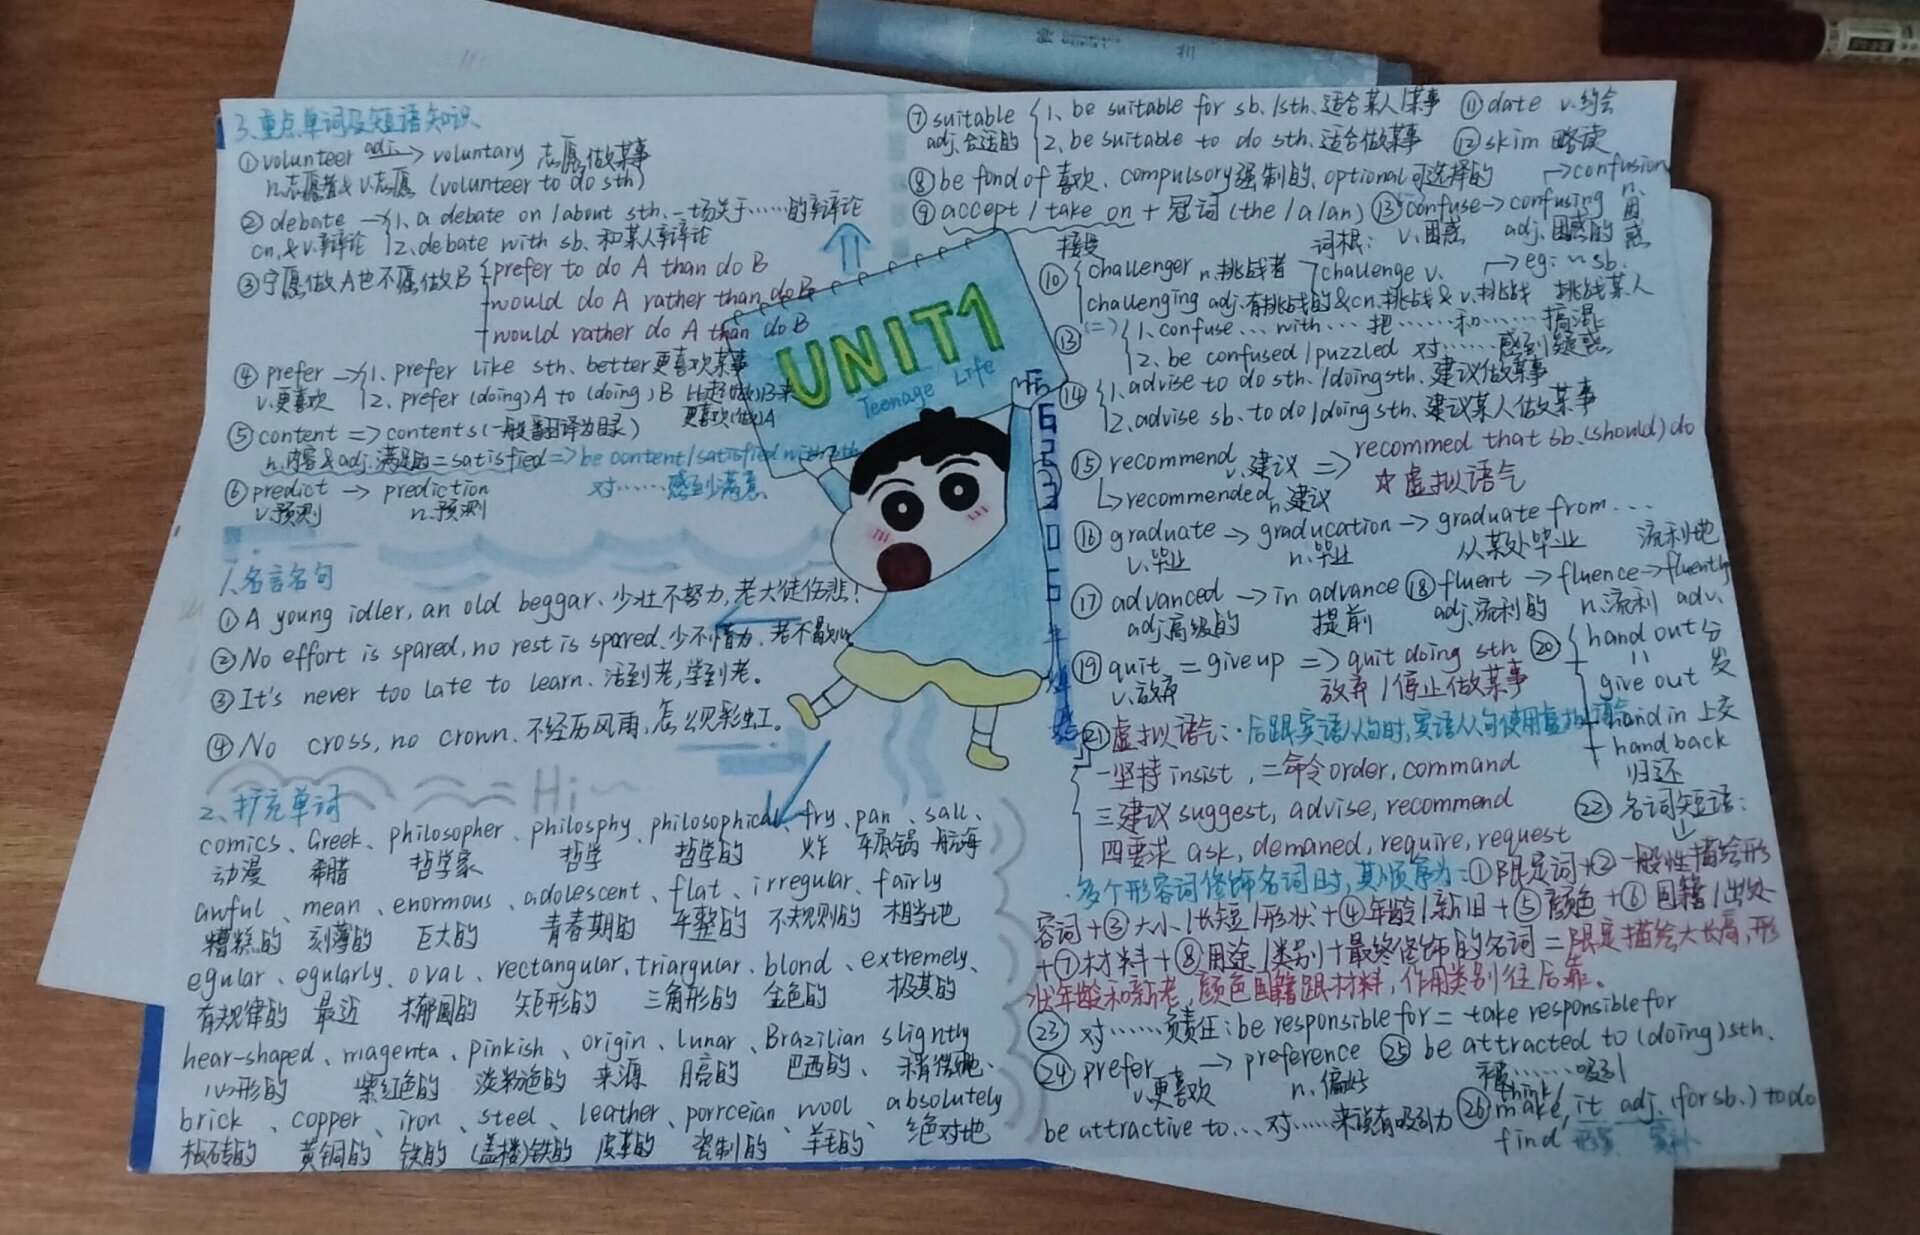 3、重点单词及短语知识
①volunteer adj.→ voluntary 志愿做某事
n.志愿者 & v.志愿 (volunteer to do sth)
②debate →1. a debate on/about sth. 一场关于……的辩论
cn.&v.辩论 2. debate with sb. 和某人辩论
③宁愿做A也不愿做B prefer to do A than do B
would do A rather than do B
would rather do A than do B
④prefer →1. prefer like sth. better 更喜欢某事
v.更喜欢 2. prefer (doing) A to (doing) B 比起(做)B来
更喜欢(做)A
⑤content => contents(一般翻译为目录)
n.内容 & adj.满足的=satisfied=>be content/satisfied with sth
对……感到满意
⑥predict → prediction
v.预测 n.预测
1、名言名句
①A young idler, an old beggar. 少壮不努力,老大徒伤悲!
②No effort is spared, no rest is spared. 少不惜力,老不歇心
③It's never too late to learn. 活到老,学到老。
④No cross, no crown. 不经历风雨,怎么见彩虹。
Hi~
2、扩充单词
comics、Greek、philosopher、philosphy、philosophical、fry、pan、sail、
动漫 希腊 哲学家 哲学 哲学的 炸 平底锅 航海
awful、mean、enormous、adolescent、flat、irregular、fairly
糟糕的 刻薄的 巨大的 青春期的 平整的 不规则的 相当地
egular、egularly、oval、rectangular、triargular、blond、extremely、
有规律的 最近 椭圆的 矩形的 三角形的 金色的 极其的
hear-shaped、magenta、pinkish、origin、lunar、Brazilian slightly
心形的 紫红色的 淡粉色的 来源 月亮的 巴西的、稍微地、
brick、copper、iron、steel、leather、porrceian、wool、absolutely
板砖的 黄铜的 铁的 (盖楼)铁的 皮革的 瓷制的 羊毛的 绝对地
UNIT1
Teenage Life
⑦suitable 1. be suitable for sb./sth. 适合某人/某事
adj.合适的 2. be suitable to do sth. 适合做某事
⑧be fond of 喜欢、compulsory强制的、optional可选择的
⑨accept/take on + 冠词(the/a/an)
接受
⑩challenger n.挑战者 词根: challenge v. →eg: ~ sb.
challenging adj.有挑战的&cn.挑战&v.挑战 挑战某人
⑪date v.约会
⑫skim 略读
⑬confuse→confusing →confusion
v.困惑 adj.困惑的 n.困惑
⑬(二) 1. confuse...with... 把……和……搞混
2. be confused/puzzled 对……感到疑惑
⑭1. advise to do sth./doing sth. 建议做某事
2. advise sb. to do/doing sth. 建议某人做某事
⑮recommend v.建议 => recommed that sb.(should) do
↳recommended n.建议 ☆虚拟语气
⑯graduate → graducation → graduate from...
v.毕业 n.毕业 从某处毕业
⑰advanced → in advance
adj.高级的 提前
⑱fluent → fluence → fluently
adj.流利的 n.流利 adv. 流利地
⑲quit = give up => quit doing sth
v.放弃 放弃/停止做某事
⑳hand out 分发
give out
hand in 上交
hand back
归还
㉑虚拟语气:·后跟宾语从句时,宾语从句使用虚拟语气
一坚持 insist,二命令 order, command
三建议 suggest, advise, recommend
四要求 ask, demaned, require, request
㉒名词短语:
·多个形容词修饰名词时,其顺序为:①限定词+②一般性描绘形
容词+③大小/长短/形状+④年龄/新旧+⑤颜色+⑥国籍/出处
+⑦材料+⑧用途/类别+最终修饰的名词=限定描绘大长高,形
状年龄和新老,颜色国籍跟材料,作用类别往后靠。
㉓对……负责任:be responsible for = take responsible for
㉔prefer → preference
v.更喜欢 n.偏好
㉕be attracted to (doing) sth.
被……吸引
be attractive to... 对……来说有吸引力
think
㉖make it adj. (for sb.) to do
find